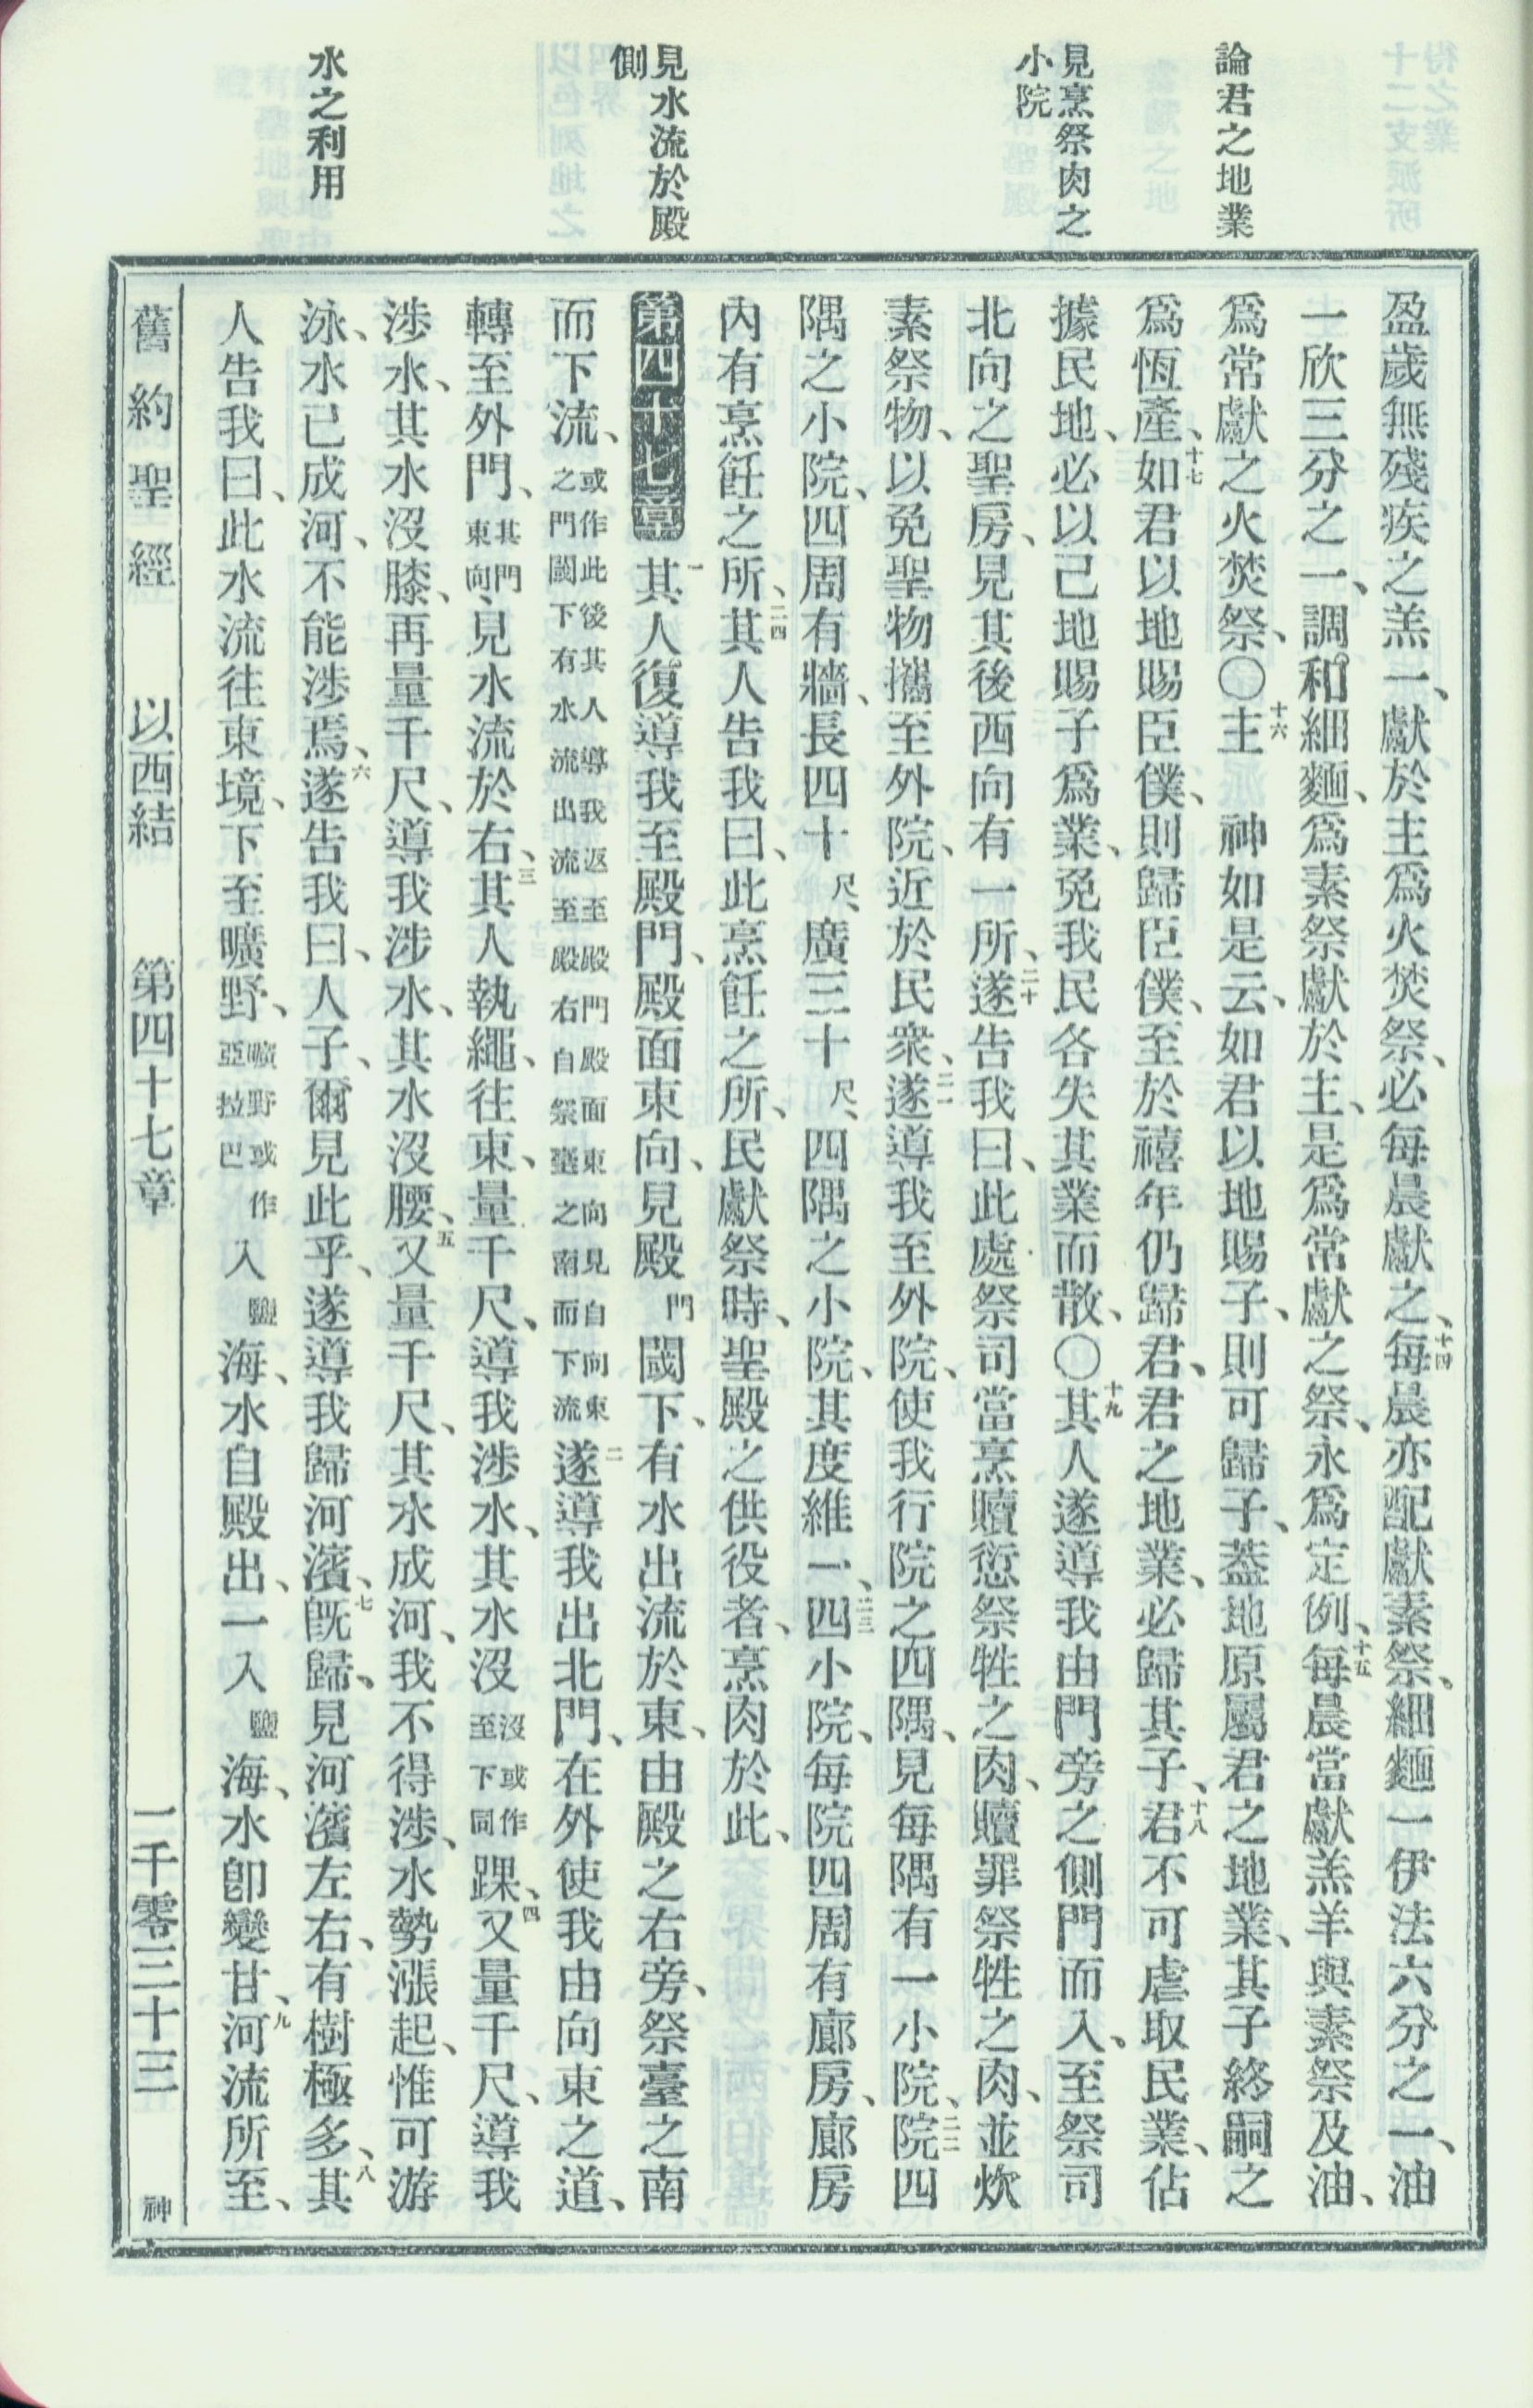 論君之地業
見烹祭肉之
小院
見水流於殿
側
水之利用
盈歲無殘疾之羔一、獻於主爲火焚祭、必每晨獻之、十四每晨亦配獻素祭、細麵一伊法六分之一、油
一欣三分之一、調和細麵、爲素祭獻於主、是爲常獻之祭、永爲定例、十五每晨當獻羔羊與素祭及油、
爲常獻之火焚祭、〇十六主 神如是云、如君以地賜子、則可歸子、蓋地原屬君之地業、其子終嗣之
爲恆產、十七如君以地賜臣僕、則歸臣僕、至於禧年仍歸君、君之地業、必歸其子、十八君不可虐取民業、佔
據民地、必以己地賜子爲業、免我民各失其業而散、〇十九其人遂導我由門旁之側門而入、至祭司
北向之聖房、見其後西向有一所、二十遂告我曰、此處祭司當烹贖愆祭牲之肉、贖罪祭牲之肉、並炊
素祭物、以免聖物攜至外院、近於民衆、二一遂導我至外院、使我行院之四隅、見每隅有一小院、二二院四
隅之小院、四周有牆、長四十尺、廣三十尺、四隅之小院、其度維一、二三四小院、每院四周有廊房、廊房
內有烹飪之所、二四其人告我曰、此烹飪之所、民獻祭時、聖殿之供役者、烹肉於此、
第四十七章 一其人復導我至殿門、殿面東向、見殿門閾下、有水出流於東、由殿之右旁、祭臺之南
而下流、或作此後其人導我返至殿門殿面東向見自向東之門閾下有水流出流至殿右自祭臺之南而下流 二遂導我出北門、在外使我由向東之道、
轉至外門、其門東向、見水流於右、三其人執繩、往東、量千尺、導我涉水、其水沒沒或作至下同踝、四又量千尺、導我
涉水、其水沒膝、再量千尺、導我涉水、其水沒腰、五又量千尺、其水成河、我不得涉、水勢漲起、惟可游
泳、水已成河、不能涉焉、六遂告我曰、人子、爾見此乎、遂導我歸河濱、七旣歸、見河濱左右、有樹極多、八其
人告我曰、此水流往東境、下至曠野、曠野或作亞拉巴入鹽海、水自殿出、一入鹽海、水卽變甘、九河流所至、
舊約聖經 以西結 第四十七章 一千零三十三 神